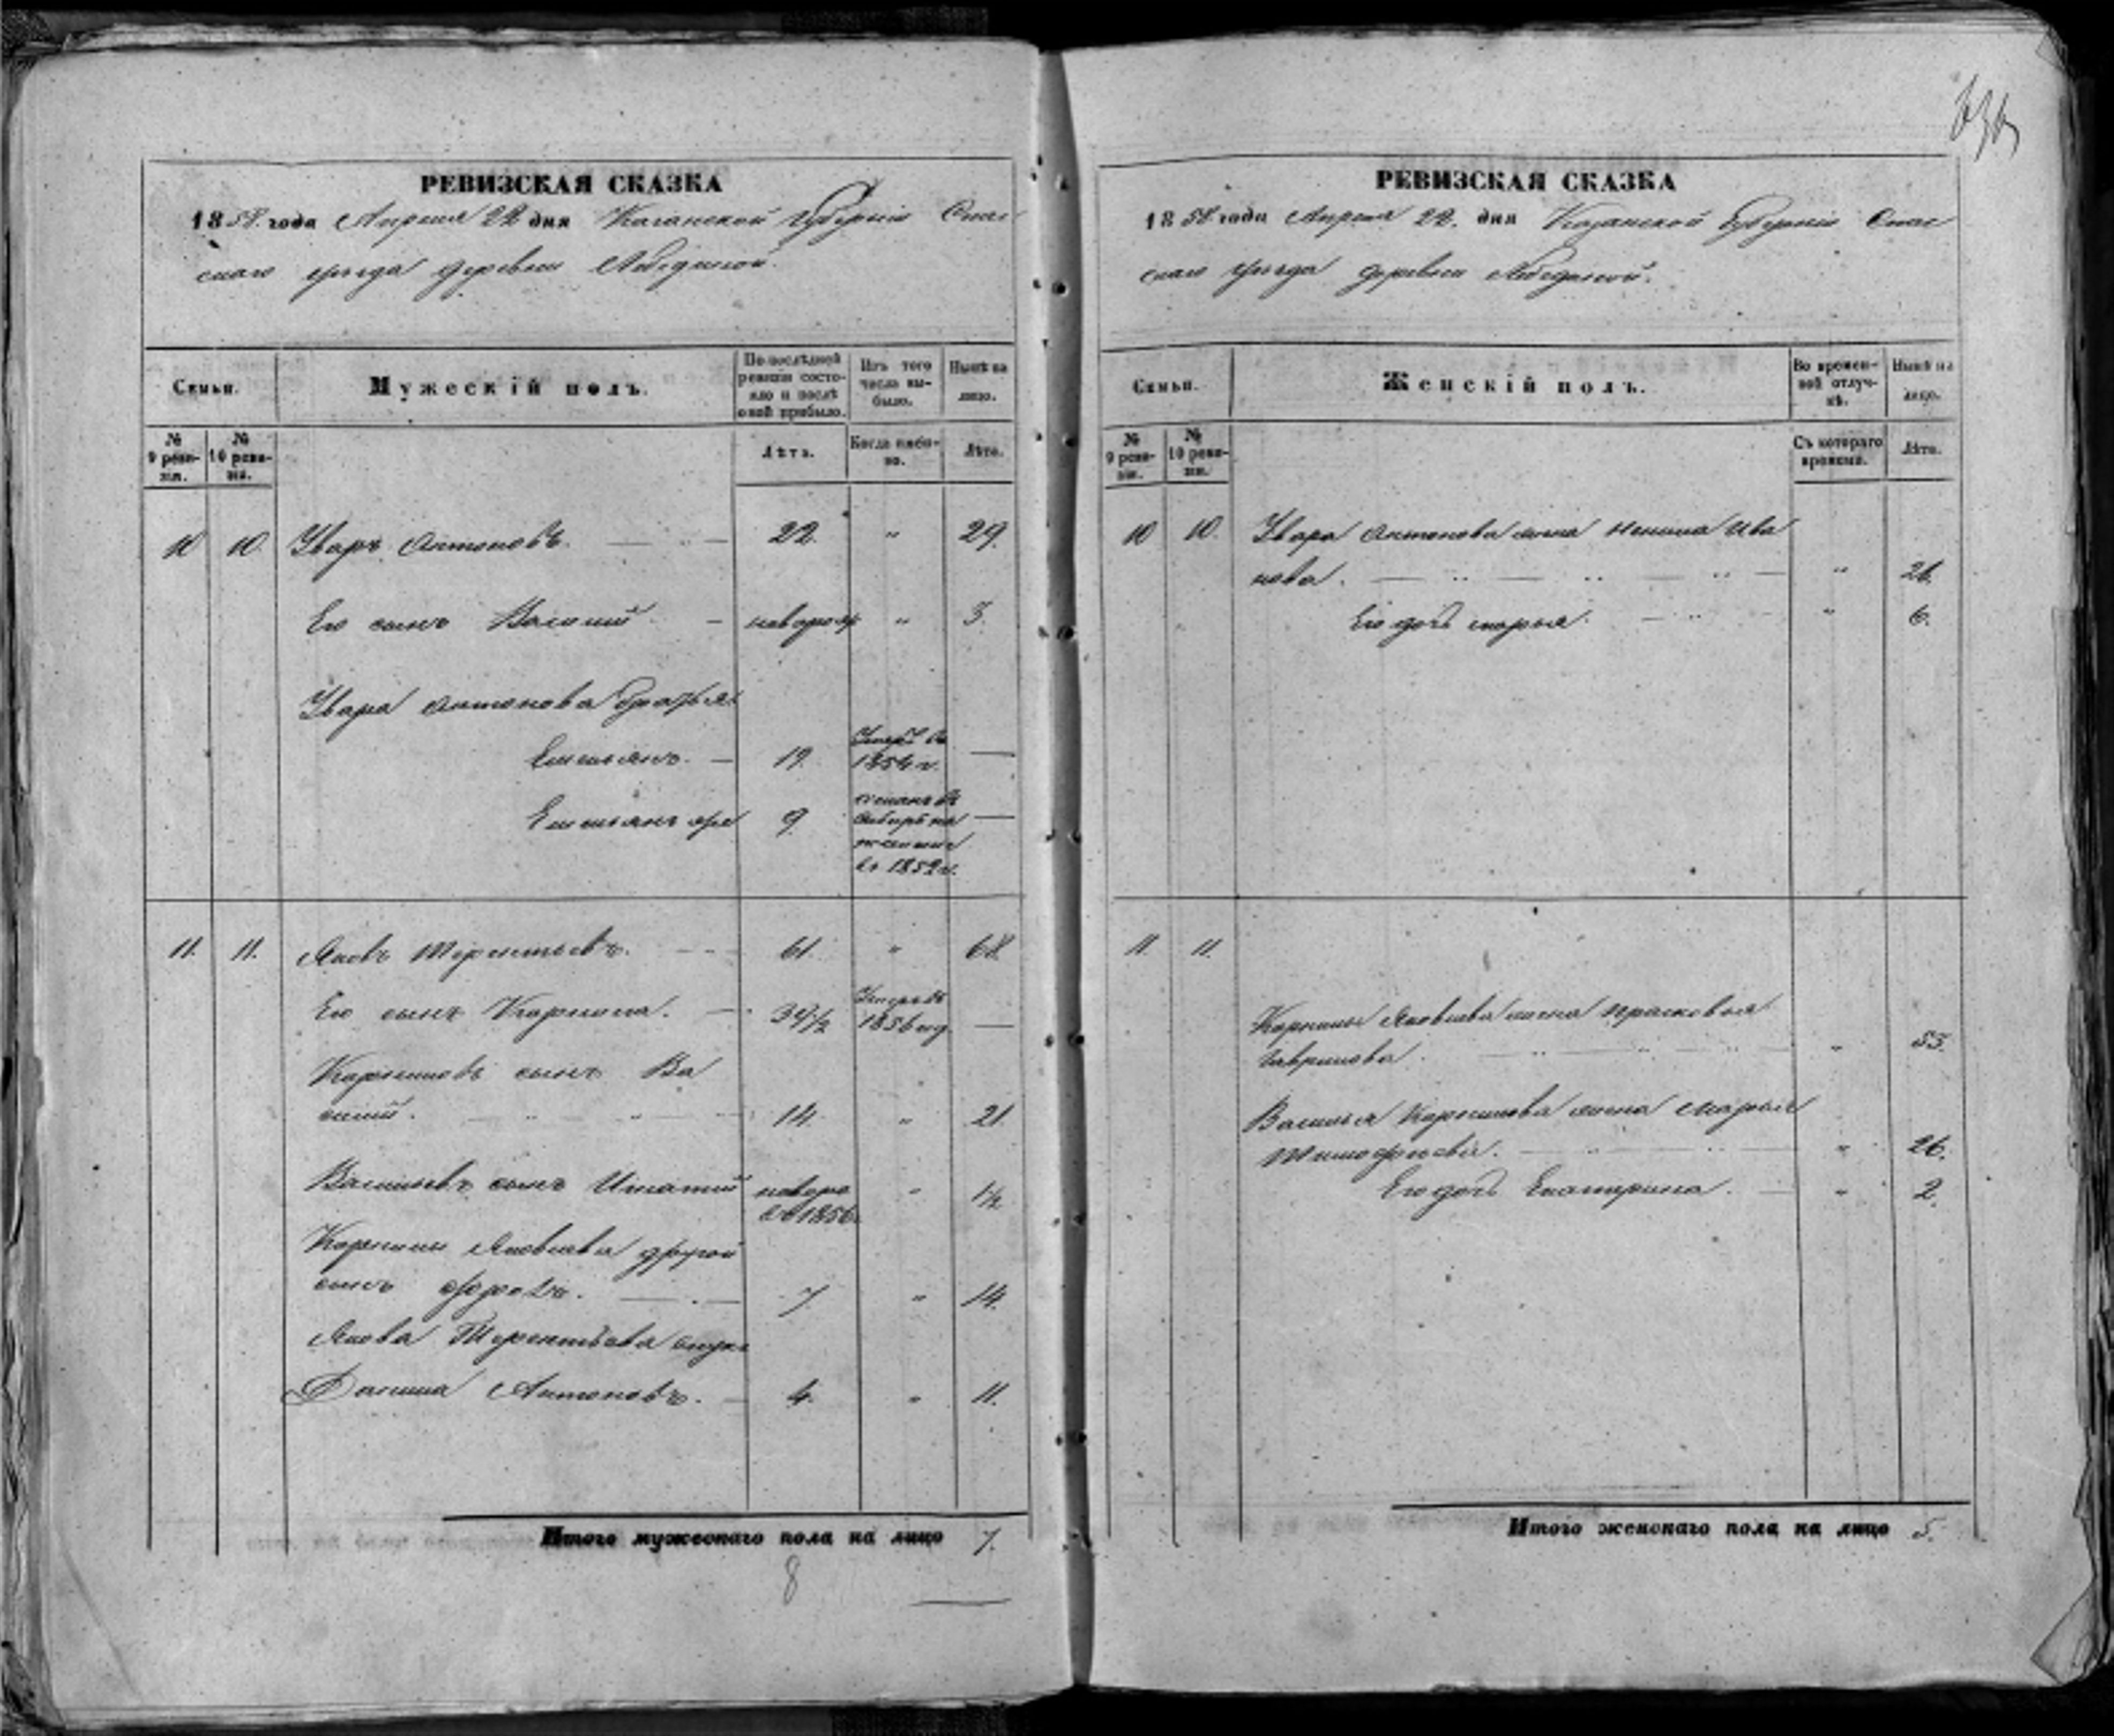 РЕВИЗСКАЯ СКАЗКА
1858. года Апреля 22 дня Казанской Губерніи Спас
скаго уѣзда деревни Лебединой.
Семьи.
Мужескій полъ.
По послѣдней ревизіи состояло и послѣ оной прибыло.
Изъ того числа выбыло.
Нынѣ на лицо.
№ 9 ревизіи.
№ 10 ревизіи.
Лѣта.
Когда именно.
Лѣта.
10 10 Уваръ Антоновъ. 22. " 29.
Его сынъ Василий новорож " 3.
Увара Антонова братья
Емельянъ. 19. Умеръ въ 1854 г. —
Емельянъ же 9 сосланъ въ Сибирь на житие въ 1852 г. —
11. 11. Яковъ Терентьевъ. 61. " 68.
Его сынъ Корнила. 34½ Умеръ въ 1856 год. —
Корниловъ сынъ Ва
силий. 14. " 21
Васильевъ сынъ Игнатий новоро въ 1856 " 1½
Корнилы Яковлева другой
сынъ Фролъ. 7 " 14.
Якова Терентьева внукъ
Данила Антоновъ. 4. " 11.
Итого мужескаго пола на лицо 7.
8
РЕВИЗСКАЯ СКАЗКА
1858 года Апреля 22. дня Казанской Губерніи Спас
скаго уѣзда деревни Лебединой.
Семьи.
Женскій полъ.
Во временной отлучкѣ.
Нынѣ на лицо.
№ 9 ревизіи.
№ 10 ревизіи.
Съ котораго времени.
Лѣта.
10 10. Увара Антонова жена Ненила Ива
нова. "
Его дочь Марья. " 6.
11 11.
Корнилы Яковлева жена Прасковья
Гаврилова. " 55.
Василья Корнилова жена Марья
Тимофеева. " 26.
Его дочь Екатерина. " 2.
Итого женскаго пола на лицо 5.